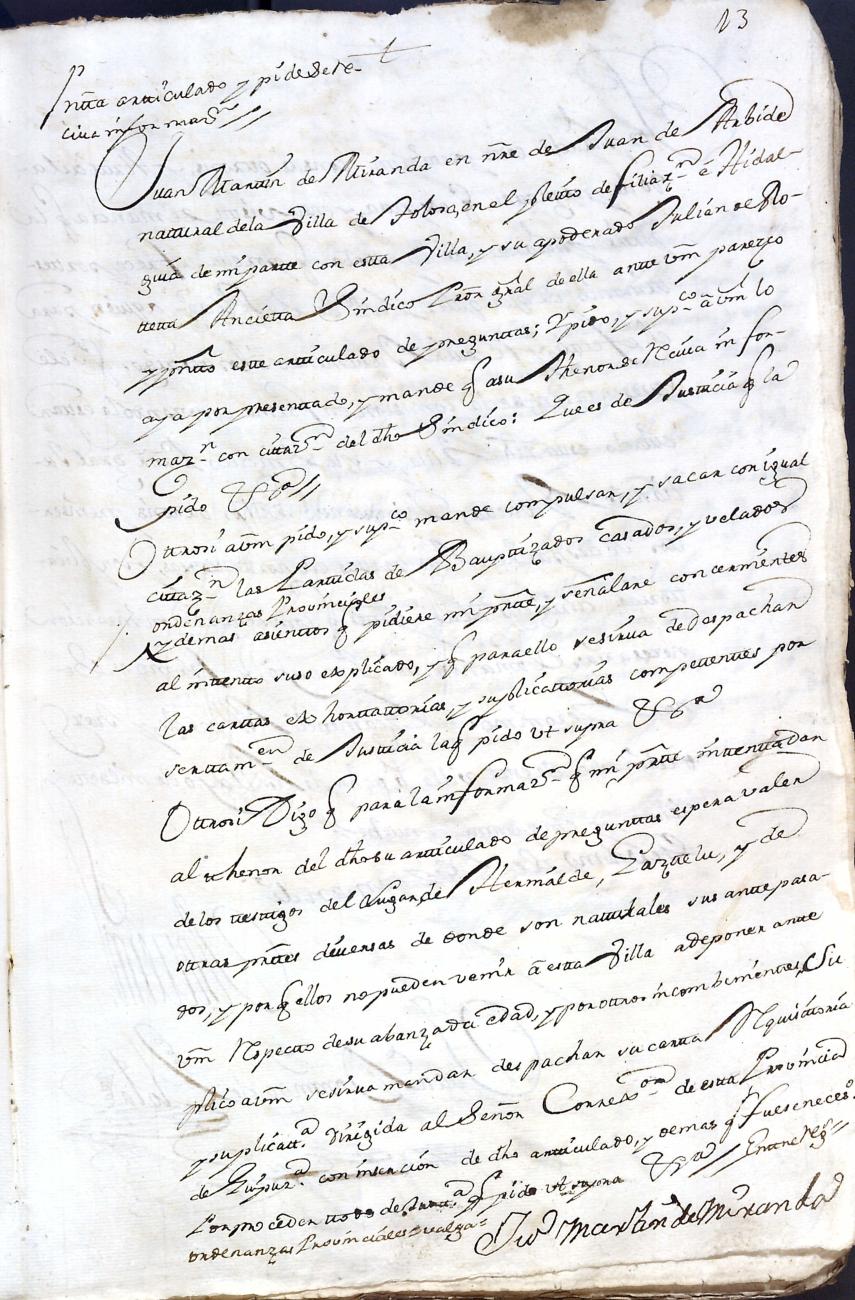 13
Pntta artticulado y pide Rete-
civa informazn
Juan Martin de Miranda en nre de Juan de Arbide
natural dela Villa de Tolosa, en el pleito de filiazn é Hidal-
guia de mi parte con esta Villa, y su apoderado Julian de Ro-
tteta Ancietta Sindico Pror gral de ella ante vm parezco
y prntto este artticulado de preguntas; Y pido, y supco á vm lo
aya por presentado, y mande q asu thenor se Reciva infor-
mazn con cittazn del dho Sindico: Que es de Justicia q la
pido &ca
Ottrosi avm pido, y supco mande compulsar, y sacar con igual
cittazn las Partidas de Bauptizados casados, y velados
ordenanzas Provinciales
y demas asienttos q pidiere mi pntte, y señalare concernientes
al intento suso explicado, y q para ello se sirva de despachar
las cartas exhorttatorias, y suplicattorias competentes por
ser de Justicia la q pido ut supra &ca
Ottrosi Digo q para la informazn q mi prte intenta dar
al thenor del dho su artticulado de preguntas espera valer
de los testigos del Lugar de Hernialde, y de
ottras prttes diversas de donde son naturales sus antepasa-
dos, y porq ellos no pueden venir á esta Villa a deponer ante
vm Respecto de su abanzada edad, y por ottros incombinientes, Su
plico avm se sirva mandar despachar su carta Rquisittoria
y suplicatta dirigida al Señor Correxor de esta Provincia
de Guipuza con insercion de dho artticulado, y demas q fuese neceso.
Por proceder ttodo de Justa q pido ut supra &ca Entre Rs
ordenanzas Provinciales = valga=
Juo Martin de Miranda